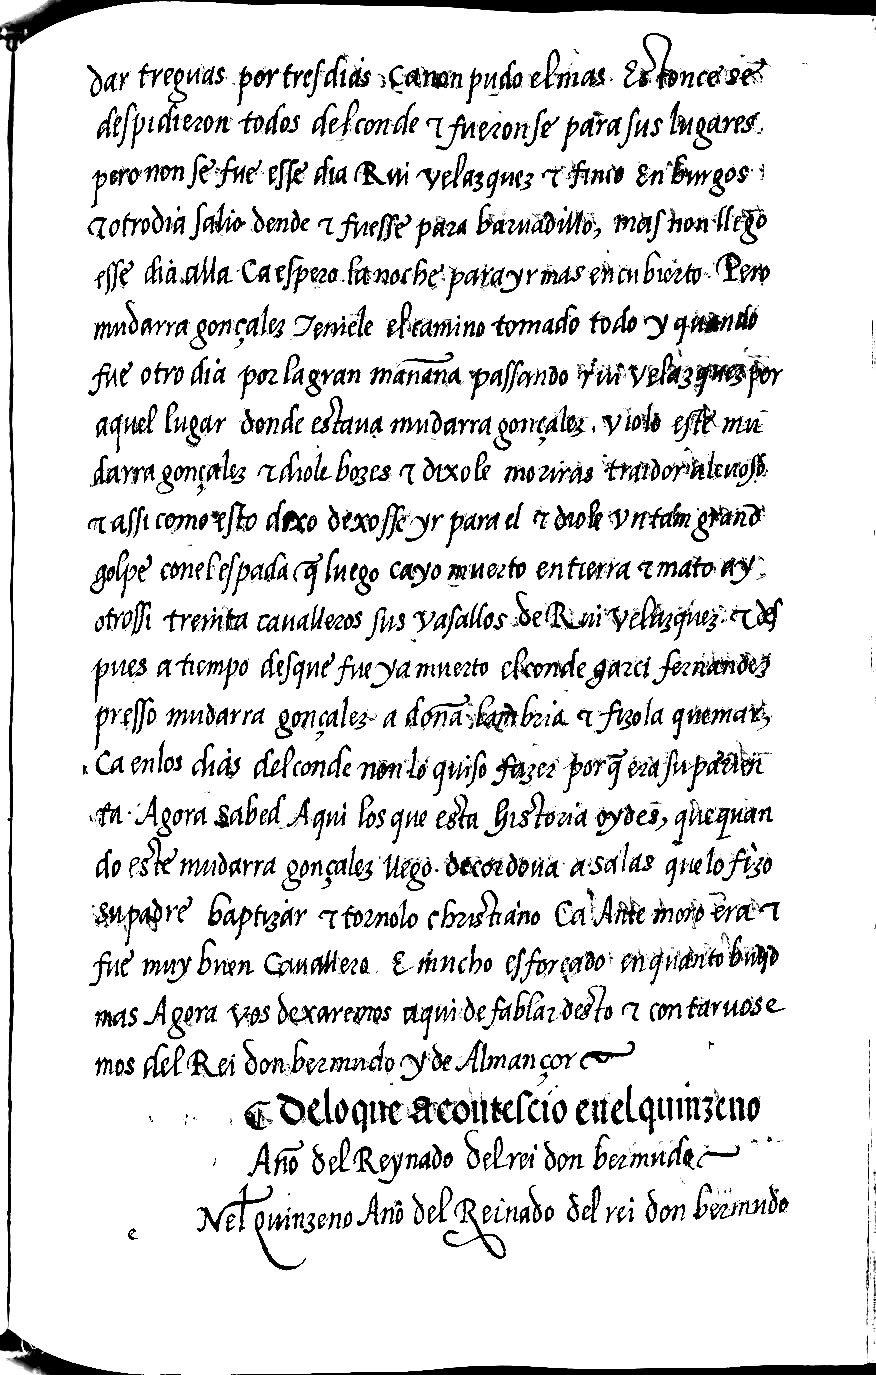 dar treguas por tres dias Ca non pudo el mas Estonce se
despidieron todos del conde ⁊ fueronse para sus lugares.
pero non se fue esse dia Rui velazquez ⁊ finco En burgos
⁊ otro dia salio dende ⁊ fuesse para baruadillo, mas non llego
esse dia alla Ca espero la noche para yr mas encubierto. Pero
mudarra gonçalez Teniele el camino tomado todo y quando
fue otro dia por la gran mañana passando rui velazquez por
aquel lugar donde estaua mudarra gonçalez. violo este mu
darra gonçalez ⁊ diole bozes ⁊ dixole moriras traidor aleuoso
⁊ assi como esto dixo dexosse yr para el ⁊ diole vn tam grand
golpe con el espada q̃ luego cayo muerto en tierra ⁊ mato ay
otrossi treinta caualleros sus vasallos de Rui velazquez. ⁊ des
pues a tiempo desque fue ya muerto el conde garci fernandez
presso mudarra gonçalez a doña lambria ⁊ fizola quemar,
Ca en los dias del conde non lo quiso fazer porq̃ era su parien
ta. Agora sabed Aqui los que esta historia oydes, que quan
do este mudarra gonçalez llego de cordoua a salas que lo fizo
su padre baptizar ⁊ tornolo christiano Ca Ante moro era ⁊
fue muy buen Cauallero E mucho esforçado en quanto buio
mas Agora vos dexaremos aqui de fablar desto ⁊ contaruos e
mos del Rei don bermudo y de Almançor
¶ De lo que acontescio en el quinzeno
Año del Reynado del rei don bermudo
Nel quinzeno Año del Reinado del rei don bermudo
e